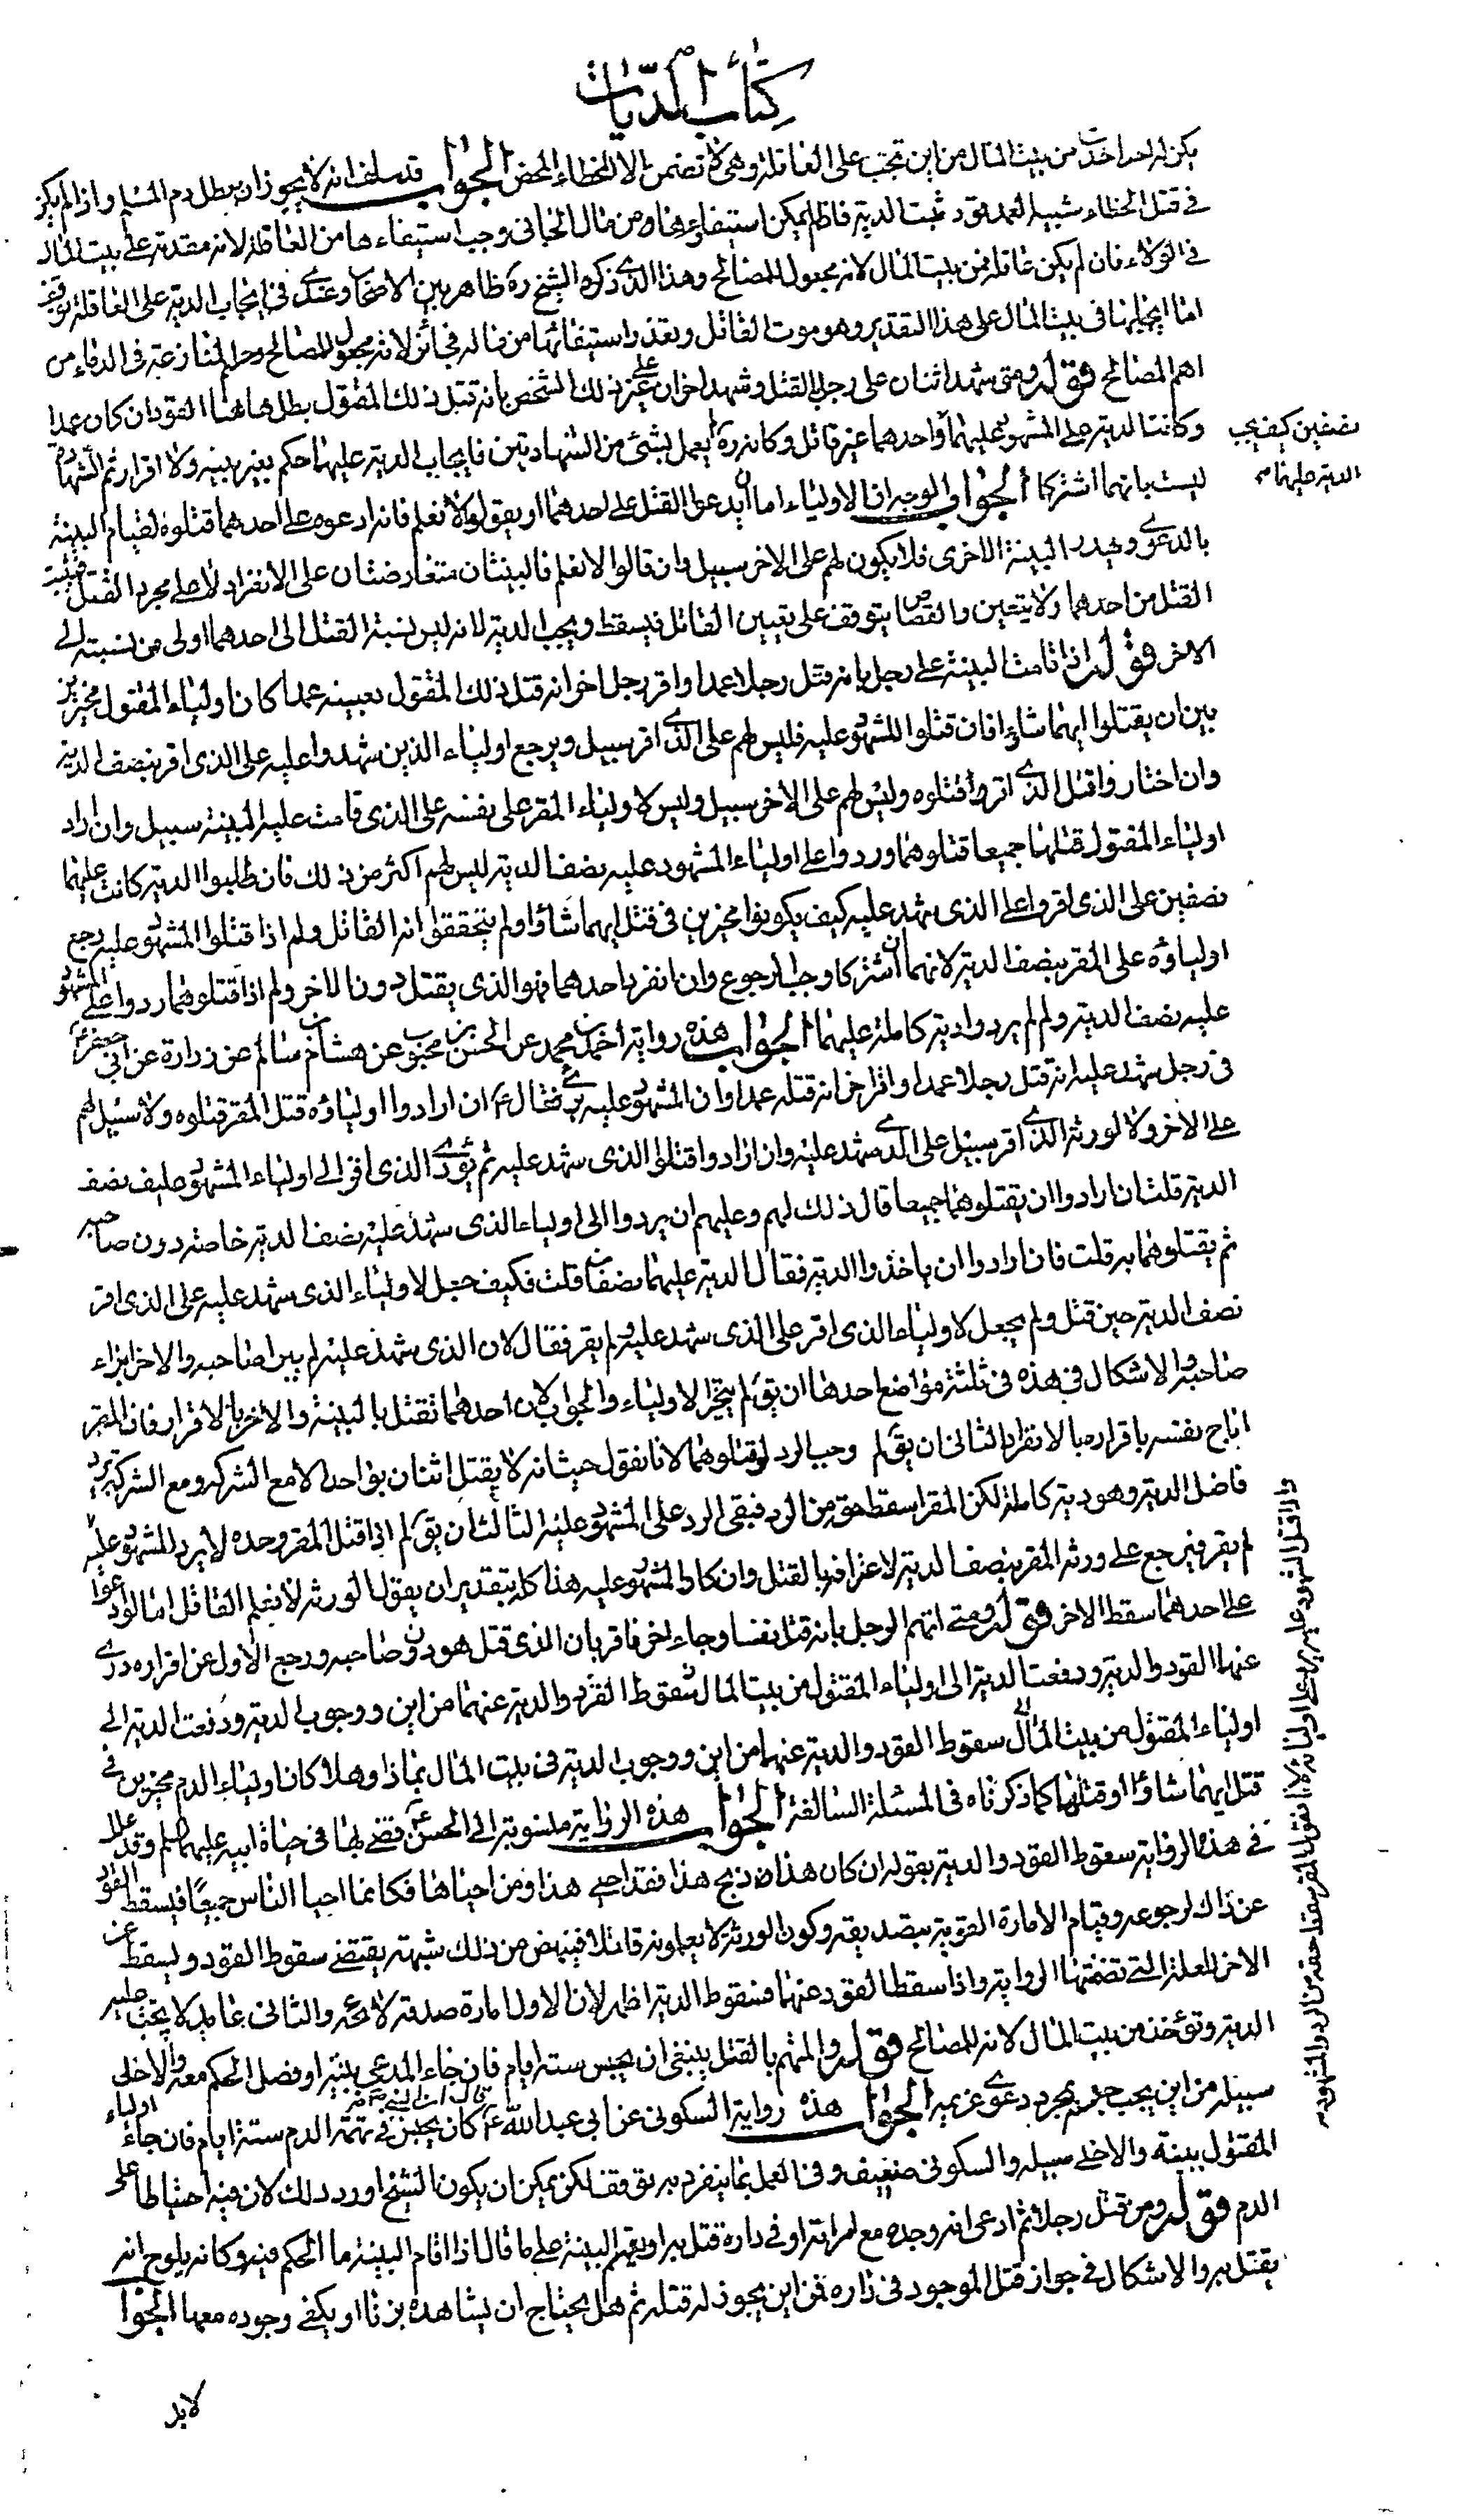 كتاب الديات
يكن له احد اخذت من بيت المال من اين تجب على العاقلة وهي لا تضمن الا الخطاء المحض الجواب قد سلف انه لا يجوز ان يبطل دم المسلم واذا لم يكن
في قتل الخطاء شبيه العمد قود ثبت الدية فاذا لم يمكن استيفاؤها من مال الجاني وجب استيفاءها من العاقلة لانه مقدمة على بيت المال
في الولاء فان لم يكن عاقلة فمن بيت المال لانه مجعول للمصالح وهذا الذي ذكره الشيخ ره ظاهر بين الاصحاب وعندي في ايجاب الدية على العاقلة توقف
اما ايجابها في بيت المال على هذا التقدير وهو موت القاتل وتعذر استيفائها من ماله فجائز لانه مجعول للمصالح وحسم المنازعة في الدماء من
اهم المصالح قوله ومتى شهد اثنان على رجل بالقتل وشهد اخران على غير ذلك الشخص بانه قتل ذلك المقتول بطل هاهنا القود ان كان عمدا
وكانت الدية على المشهود عليهما واحدهما غير قاتل وكانه ره لم يعمل بشئ من الشهادتين فايجاب الدية عليهما حكم بغير بينه ولا اقرار ثم الشهادة
ليست بانهما اشتركا الجواب الوجه ان الاولياء اما ان يدعوا القتل على احدهما او يقولوا لا نعلم فان ادعوه على احدهما قتلوه لقيام البينة
بالدعوى وتهدر البينة الاخرى فلا يكون لهم على الاخر سبيل وان قالوا لا نعلم فالبينتان متعارضتان على الانفراد لا على مجرد القتل فيثبت
القتل من احدهما ولا يتعين والقصاص يتوقف على تعيين القاتل فيسقط ويجب الدية لانه ليس نسبة القتل الى احدهما اولى من نسبته الى
الاخر قوله اذا قامت البينة على رجل بانه قتل رجلا عمدا واقر رجل اخر انه قتل ذلك المقتول بعينه عمدا كان اولياء المقتول مخيرين
بين ان يقتلوا ايهما شاؤا فان قتلوا المشهود عليه فليس لهم على الذي اقر سبيل ويرجع اولياء الذين شهدوا عليه على الذي اقر بنصف الدية
وان اختاروا قتل الذي اقر قتلوه وليس لهم على الاخر سبيل وليس لاولياء المقر على نفسه على الذي قامت عليه البينة سبيل وان اراد
اولياء المقتول قتلهما جميعا قتلوهما وردوا على اولياء المشهود عليه نصف الدية ليس لهم اكثر من ذلك فان طلبوا الدية كانت عليهما
نصفين على الذي اقر وعلى الذي شهد عليه كيف يكونوا مخيرين في قتل ايهما شاؤا ولم يتحققوا انه القاتل ولم اذا قتلوا المشهود عليه رجع
اولياؤه على المقر بنصف الدية لانهما ان اشتركا وجب الرجوع وان انفرد احدهما فهو الذي يقتل دون الاخر ولم اذا قتلوهما ردوا على المشهود
عليه نصف الدية ولم لم يردوا دية كاملة عليهما الجواب هذه رواية احمد بن محمد عن الحسن بن محبوب عن هشام بن سالم عن زرارة عن ابي جعفر ع
في رجل شهد عليه انه قتل رجلا عمدا واقر اخر انه قتله عمدا وان المشهود عليه برئ فقال ع ان ارادوا اولياؤه قتل المقر قتلوه ولا سبيل لهم
على الاخر ولا لورثة الذي اقر سبيل على الذي شهد عليه وان ارادوا قتلوا الذي شهد عليه ثم يؤدي الذي اقر الى اولياء المشهود عليه نصف
الدية قلت ان ارادوا ان يقتلوهما جميعا قال ذلك لهم وعليهم ان يردوا الى اولياء الذي شهد عليه نصف الدية خاصة دون صاحبه
ثم يقتلوهما به قلت فان ارادوا ان ياخذوا الدية فقال الدية عليهما نصفان قلت فكيف جعل لاولياء الذي شهد عليه على الذي اقر
نصف الدية حين قتل ولم يجعل لاولياء الذي اقر على الذي شهد عليه ولم يقر فقال لان الذي شهد عليه لم يبرا صاحبه والاخر ابراء
صاحبه والاشكال في هذه في ثلثة مواضع احدها ان يق لم يتخير الاولياء والجواب لان احدهما ثقتل بالبينة والاخر بالاقرار فان المقر
اباح نفسه باقراره بالانفراد الثاني ان يق لم وجب الرد لو قتلوهما لانا نقول حيث انه لا يقتل اثنان بواحد الا مع الشركة ومع الشركة يرد
فاضل الدية وهو دية كاملة لكن المقر اسقط حقه من الرد فبقى الرد على المشهود عليه الثالث ان يق لم اذا قتل المقر وحده لا يرد المشهود عليه
لم يقر فيرجع على ورثة المقر بنصف الدية لاعترافه بالقتل وانكار المشهود عليه هذا كله بتقدير ان يقول الورثة لا نعلم القاتل اما لو ادعوا
على احدهما سقط الاخر قوله ومتى اتهم الرجل بانه قتل نفسا وجاء اخر فاقر بان الذي قتل هو دون صاحبه ورجع الاول عن اقراره درئ
عنهما القود والدية ودفعت الدية الى اولياء المقتول من بيت المال سقوط القود والدية عنهما من اين ووجوب الدية ودفعت الدية الى
اولياء المقتول من بيت المال سقوط القود والدية عنهما من اين ووجوب الدية في بيت المال بماذا وهلا كان اولياء الدم مخيرين في
قتل ايهما شاؤا او قتلهما كما ذكرناه في المسئلة السالفة الجواب هذه الرواية منسوبة الى الحسن ع قضى بها في حياة ابيه عليهما السلم وقد علل
في هذه الرواية سقوط القود والدية بقوله ان كان هذا ذبح هذا فقد احيى هذا ومن احياها فكانما احيا الناس جميعا فيسقط القود
عن ذاك لرجوعه وقيام الامارة القوية بتصديقه وكون الورثة لا يعلمونه قاتلا فينهض من ذلك شبهة يقتضي سقوط القود ويسقط عن
الاخر للعلة التي تضمنتها الرواية واذا سقط القود عنهما فسقوط الدية اظهر لان الاول امارة صدقه لائحة والثاني عامد لا يجب عليه
الدية وتؤخذ من بيت المال لانه للمصالح قوله والمتهم بالقتل ينبغي ان يحبس ستة ايام فان جاء المدعي ببينة او فصل الحكم معه والا خلى
سبيله من اين يجب حبسه بمجرد دعوى غريمه الجواب هذه رواية السكوني عن ابي عبد الله ع كان يحبس في تهمة الدم ستة ايام فان جاء اولياء
المقتول ببينة والا خلى سبيله والسكوني ضعيف وفي العمل بما ينفرد به توقف لكن يمكن ان يكون الشيخ اورد ذلك لان فيه احتياطا على
الدم قوله ومن قتل رجلا ثم ادعى انه وجده مع امراته او في داره قتل به او يقيم البينة على ما قال اذا اقام البينة ما الحكم فيه وكانه يلوح انه
يقتل به والاشكال في جواز قتل الموجود في داره فمن اين يجوز له قتله ثم هل يحتاج ان يشاهده يزنا او يكفي وجوده معها الجواب
لابد
نصفين كيف يجب
الدية عليهما